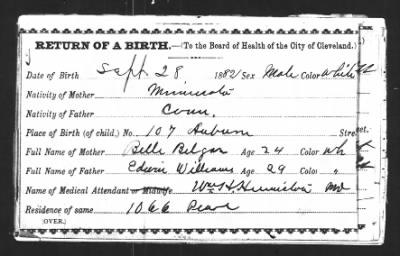 RETURN OF A BIRTH.—(To the Board of Health of the City of Cleveland.)
Date of Birth Sept. 28, 1882 Sex Male Color White
Nativity of Mother Minnesota
Nativity of Father Conn.
Place of Birth (of child.) No. 107 Auburn Street.
Full Name of Mother Belle Age 24 Color Wh
Full Name of Father Edwin Williams Age 29 Color "
Name of Medical Attendant or Midwife Wm H Humiston MD
Residence of same 1066 Pearl
(OVER.)